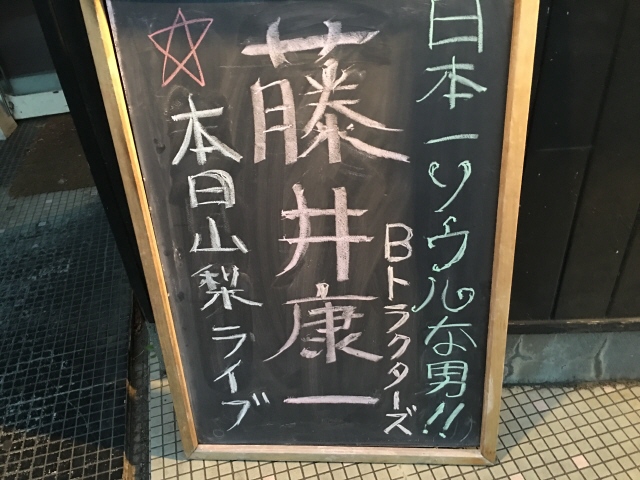 日本一ソウルな男!!
Bトラクターズ
藤井康一
本日山梨ライブ